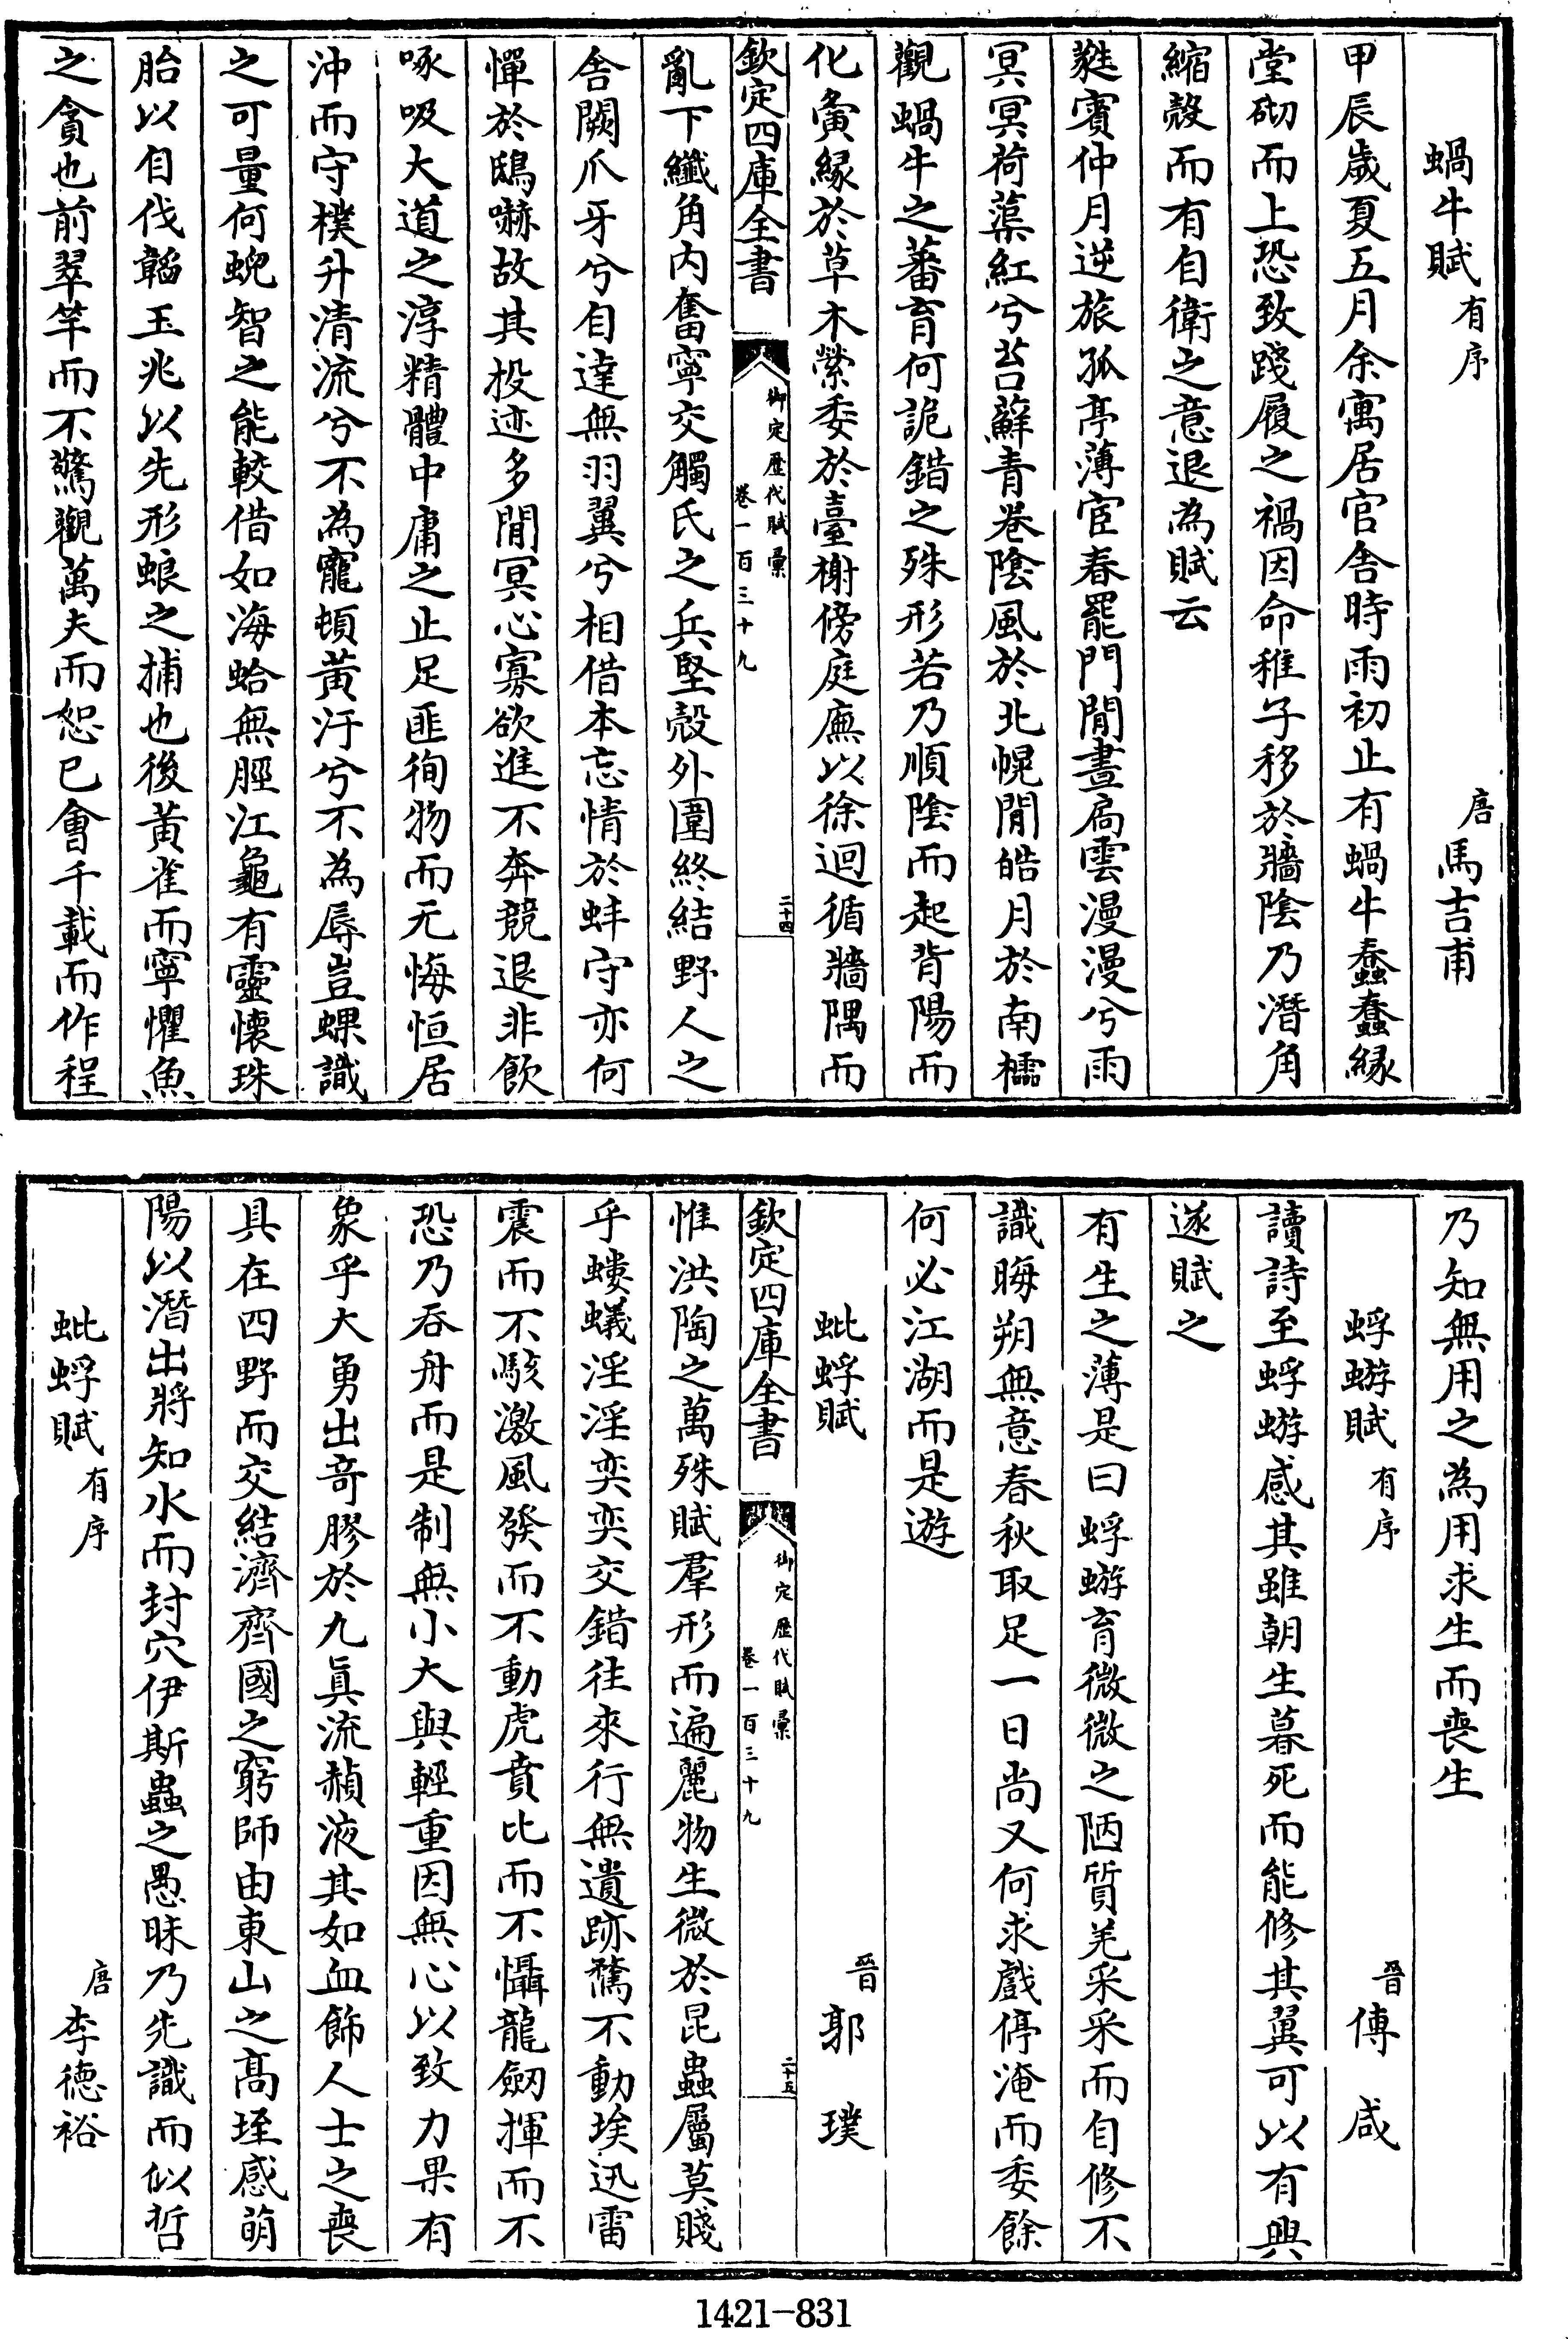 蝸牛賦有序 唐馬吉甫
甲辰歲夏五月余寓居官舍時雨初止有蝸牛蠢蠢緣
堂砌而上恐致踐履之禍因命稚子移於牆陰乃潛角
縮殼而有自衛之意退為賦云
蕤賓仲月逆旅孤亭薄宦春罷門閒晝扃雲漫漫兮雨
冥冥荷蕖紅兮苔蘚青巻陰風於北幌閒皓月於南櫺
觀蝸牛之蕃育何詭錯之殊形若乃順陰而起背陽而
化夤緣於草木縈委於臺榭傍庭廡以徐迴循牆隅而
欽定四庫全書 御定歷代賦彙 卷一百三十九 二十四
亂下纖角内奮寧交觸氏之兵堅殼外圍終結野人之
舍闕爪牙兮自達無羽翼兮相借本忘情於蚌守亦何
憚於鴟嚇故其投迹多閒冥心寡欲進不奔競退非飲
啄吸大道之淳精體中庸之止足匪徇物而无悔恒居
沖而守樸升清流兮不為寵頓黃汙兮不為辱豈螺識
之可量何蜺智之能較借如海蛤無脛江龜有靈懷珠
胎以自伐韜玉兆以先形蜋之捕也後黃雀而寧懼魚
之貪也前翠竿而不驚觀萬夫而恕已會千載而作程
乃知無用之為用求生而喪生
蜉蝣賦有序 晉傅咸
讀詩至蜉蝣感其雖朝生暮死而能修其翼可以有興
遂賦之
有生之薄是曰蜉蝣育微微之陋質羌采采而自修不
識晦朔無意春秋取足一日尚又何求戲停淹而委餘
何必江湖而是遊
蚍蜉賦 晉郭璞
欽定四庫全書 御定歷代賦彙 卷一百三十九 二十五
惟洪陶之萬殊賦羣形而遍麗物生微於昆蟲屬莫賤
乎螻蟻淫淫奕奕交錯往來行無遺跡騖不動埃迅雷
震而不駭激風發而不動虎賁比而不懾龍劒揮而不
恐乃吞舟而是制無小大與輕重因無心以致力果有
象乎大勇出竒膠於九眞流頳液其如血飾人士之喪
具在四野而交結濟齊國之窮師由東山之髙垤感萌
陽以潛出將知水而封穴伊斯蟲之愚昧乃先識而似哲
蚍蜉賦有序 唐李德裕
1421-831